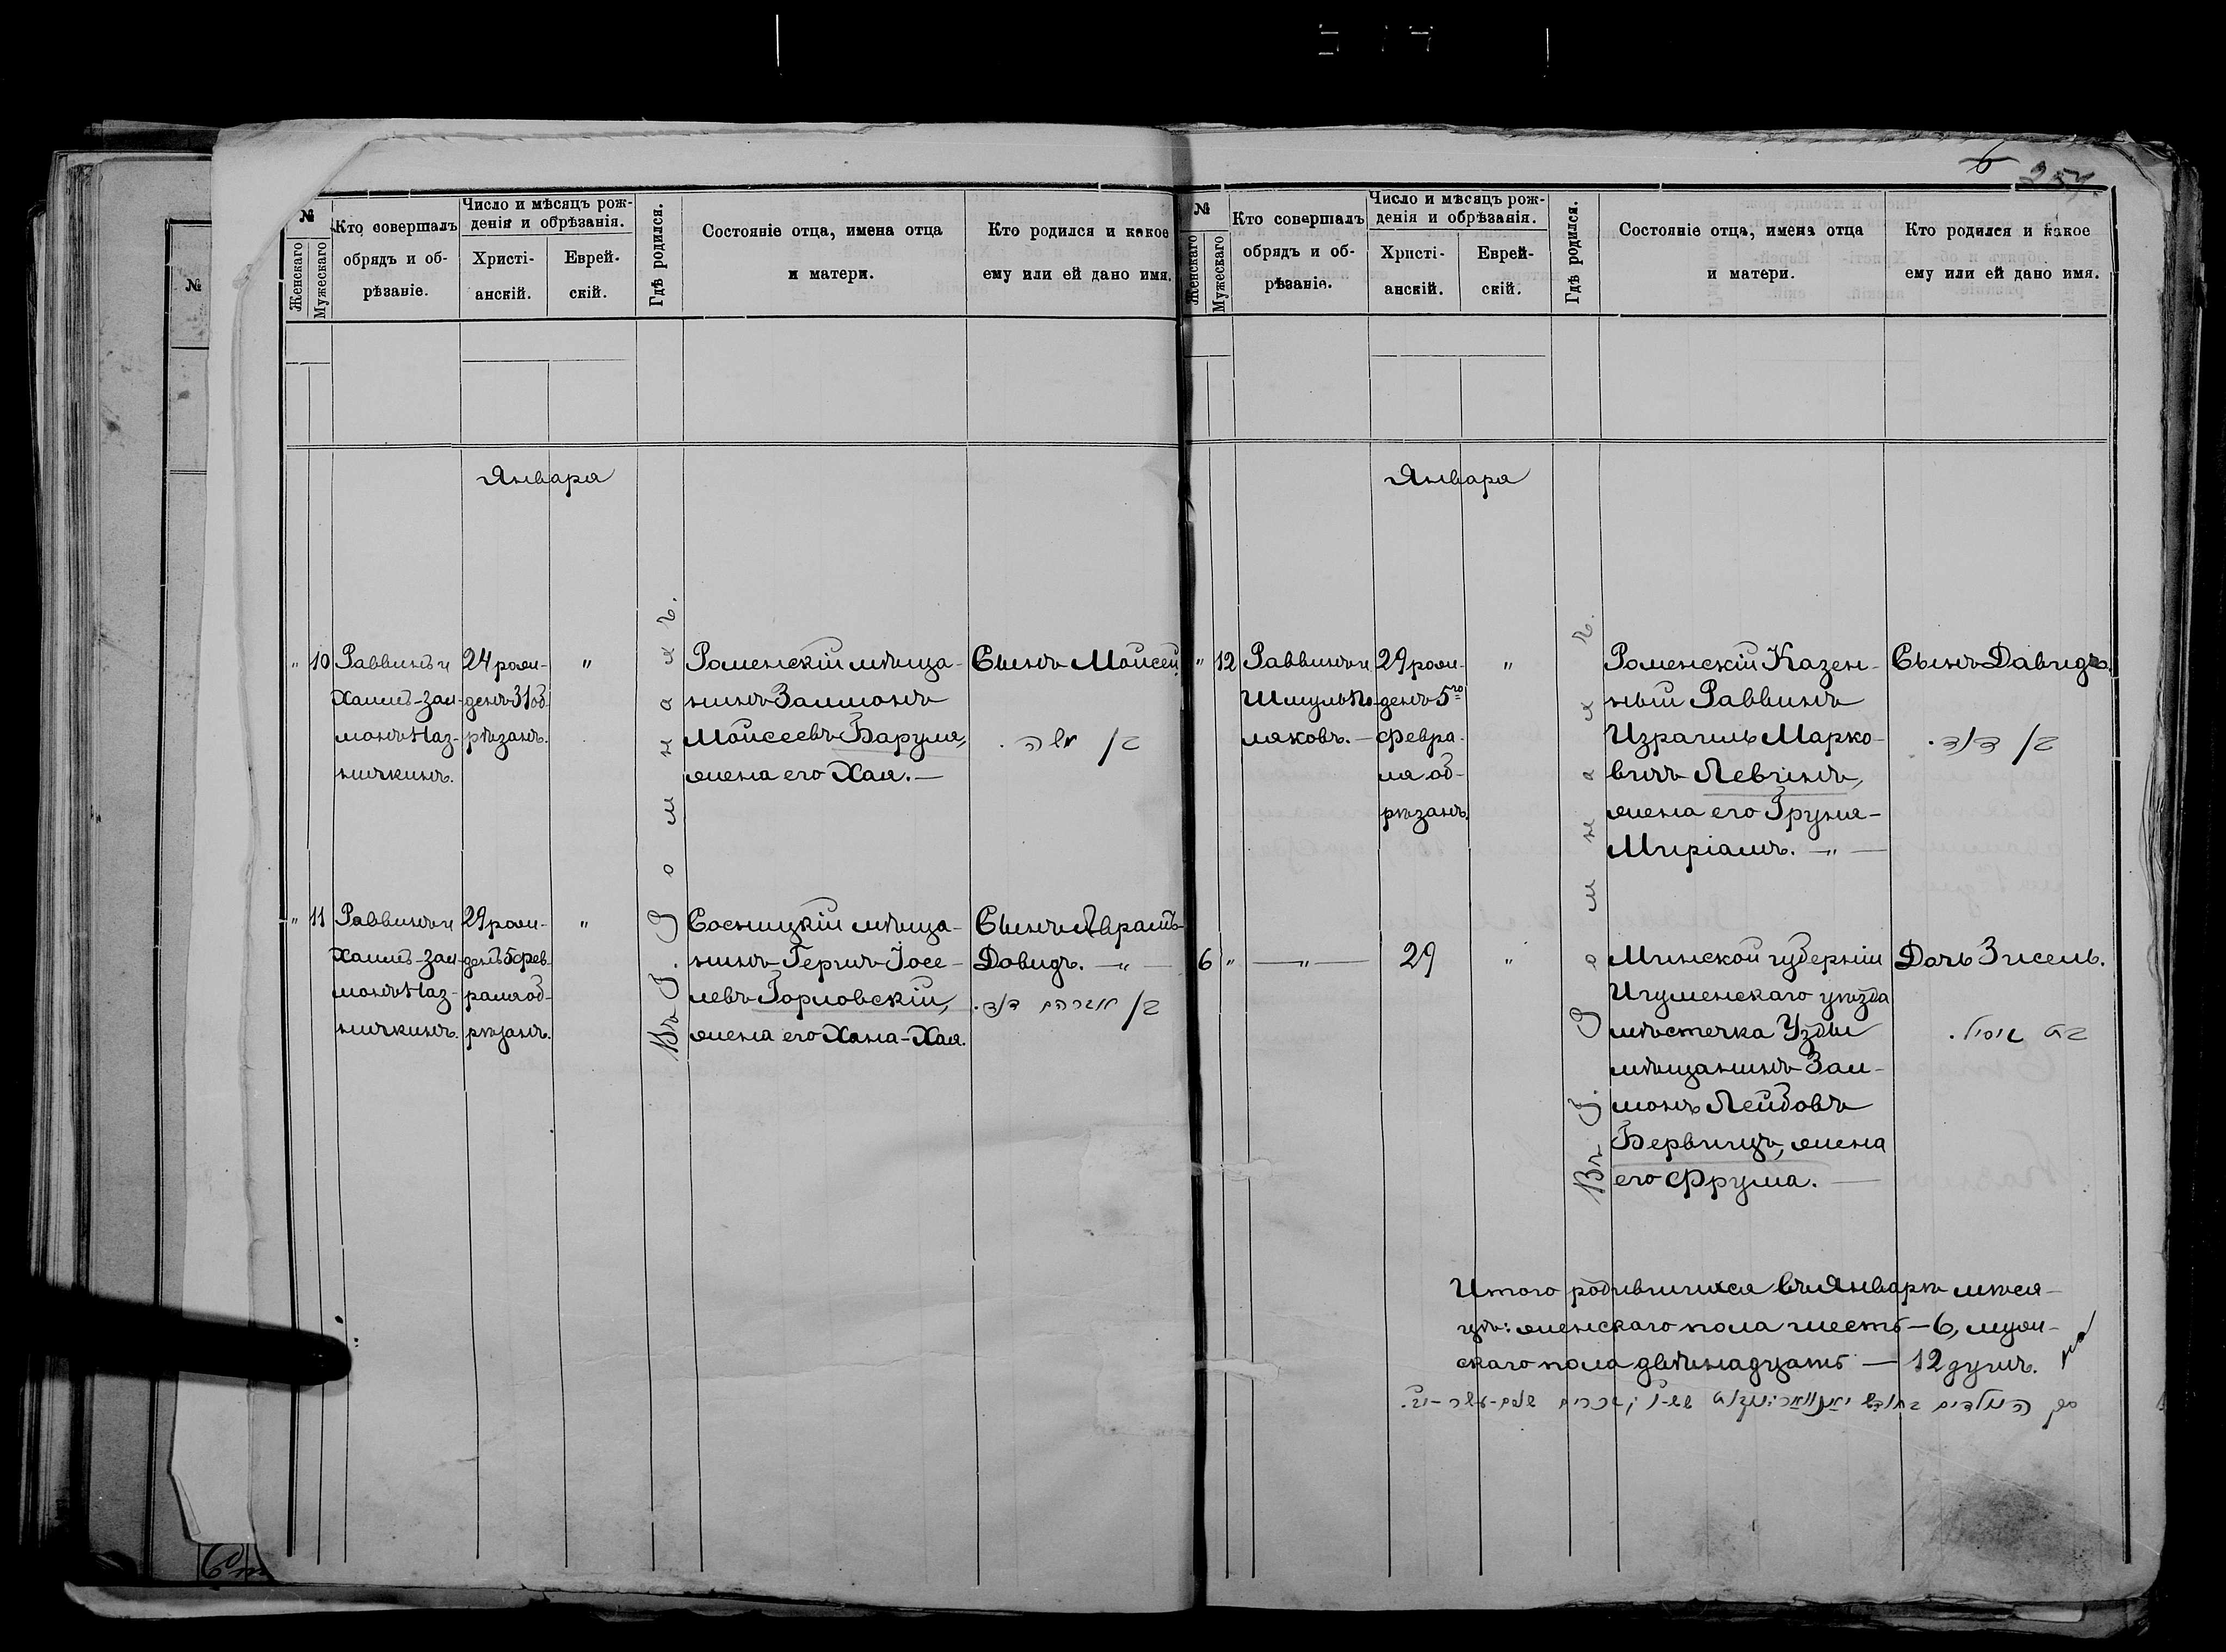 6
257.
№
№
Женскаго
Мужескаго
Кто совершалъ
обрядъ и об-
рѣзаніе.
Число и мѣсяцъ рож-
денія и обрѣзанія.
Христі-
анскій.
Еврей-
скій.
Гдѣ родился.
Состояніе отца, имена отца
и матери.
Кто родился и какое
ему или ей дано имя.
Января
" 10
Раввинъ и
Хаимъ-Зал-
монъ Наз-
ничкинъ.
24 рож-
денъ 31 об-
рѣзанъ.
"
Въ г. Ромнахъ.
Роменскій мѣща-
нинъ Залмонъ
Мойсеевъ Барумя,
жена его Хая. —
Сынъ Мойсей.
בן משה.
" 11
Раввинъ и
Хаимъ-Зал-
монъ Наз-
ничкинъ.
29 рож-
денъ 5 фев-
раля об-
рѣзанъ.
"
Сосницкій мѣща-
нинъ Гершъ Іосе-
левъ Горловскій,
жена его Хана-Хая.
Сынъ Аврамъ-
Довидъ. — " —
בן אברהם דוד.
№
Женскаго
Мужескаго
Кто совершалъ
обрядъ и об-
рѣзаніе.
Число и мѣсяцъ рож-
денія и обрѣзанія.
Христі-
анскій.
Еврей-
скій.
Гдѣ родился.
Состояніе отца, имена отца
и матери.
Кто родился и какое
ему или ей дано имя.
Января
" 12
Раввинъ и
Шмуль По-
ляковъ. —
29 рож-
денъ 5го
февра-
ля об-
рѣзанъ.
"
Въ г. Ромнахъ.
Роменскій Казен-
ный Раввинъ
Израиль Марко-
вичъ Левинъ,
жена его Груня-
Миріамъ. — " —
Сынъ Давидъ.
בן דוד.
6 "
— " —
29
"
Минской губерніи
Игуменскаго уѣзда
мѣстечка Узды
мѣщанинъ Зал-
монъ Лейбовъ
Бервицъ, жена
его Фрума. —
Дочь Зисель.
בת זיסל.
Итого родившихся въ Январѣ мѣся-
цѣ: женскаго пола шесть — 6, муж-
скаго пола двѣнадцать — 12 душъ.
הנולדים בחודש יאנואר: נקבות שש ו, זכרים שנים-עשר י״ב.